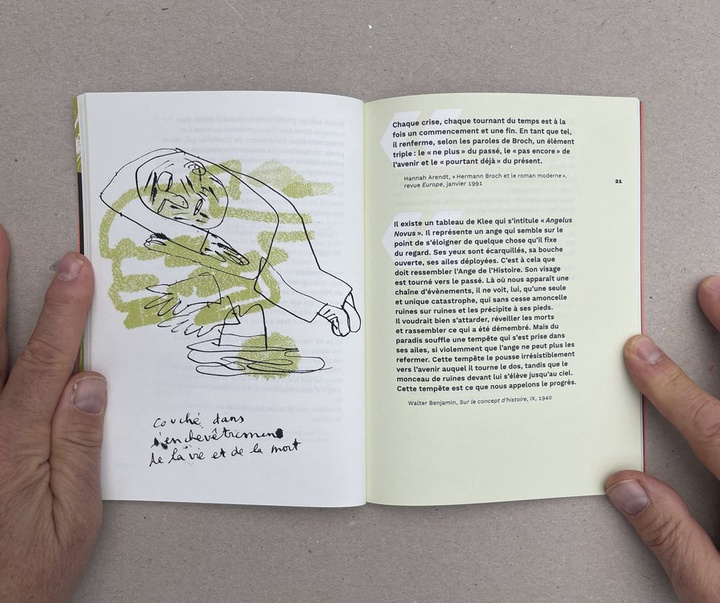 couché dans
l'enchevêtrement
de la vie et de la mort
Chaque crise, chaque tournant du temps est à la
fois un commencement et une fin. En tant que tel,
il renferme, selon les paroles de Broch, un élément
triple : le « ne plus » du passé, le « pas encore » de
l'avenir et le « pourtant déjà » du présent.
Hannah Arendt, « Hermann Broch et le roman moderne »,
revue Europe, janvier 1991
21
Il existe un tableau de Klee qui s'intitule « Angelus
Novus ». Il représente un ange qui semble sur le
point de s'éloigner de quelque chose qu'il fixe
du regard. Ses yeux sont écarquillés, sa bouche
ouverte, ses ailes déployées. C'est à cela que
doit ressembler l'Ange de l'Histoire. Son visage
est tourné vers le passé. Là où nous apparaît une
chaîne d'évènements, il ne voit, lui, qu'une seule
et unique catastrophe, qui sans cesse amoncelle
ruines sur ruines et les précipite à ses pieds.
Il voudrait bien s'attarder, réveiller les morts
et rassembler ce qui a été démembré. Mais du
paradis souffle une tempête qui s'est prise dans
ses ailes, si violemment que l'ange ne peut plus les
refermer. Cette tempête le pousse irrésistiblement
vers l'avenir auquel il tourne le dos, tandis que le
monceau de ruines devant lui s'élève jusqu'au ciel.
Cette tempête est ce que nous appelons le progrès.
Walter Benjamin, Sur le concept d'histoire, IX, 1940